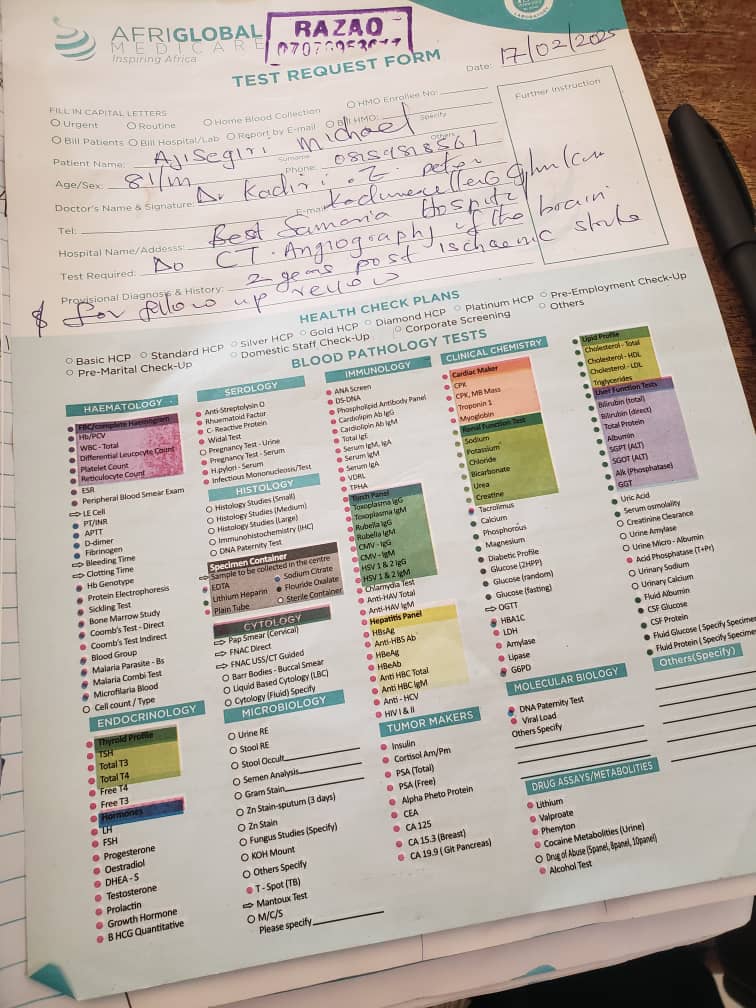 AFRIGLOBAL
MEDICARE
Inspiring Africa
RAZAO
TEST REQUEST FORM
Date: 17/02/2025
FILL IN CAPITAL LETTERS
O Urgent O Routine O Home Blood Collection O HMO Enrollee No:
O Bill Patients O Bill Hospital/Lab O Report by E-mail O Bill HMO: Specify
Further Instruction
Patient Name: Ajisegiri Michael
Surname Others
Age/Sex: 81/m Phone: 08159818561
Doctor's Name & Signature: Dr Kadiri .Z. Peter
Tel: E-mail
Hospital Name/Addesss: Best Samaria Hospital
Test Required: Do CT. Angiography of the brain
Provisional Diagnosis & History: 2 years post ischaemic stroke
& for follow up review
HEALTH CHECK PLANS
O Basic HCP O Standard HCP O Silver HCP O Gold HCP O Diamond HCP O Platinum HCP O Pre-Employment Check-Up
O Pre-Marital Check-Up O Domestic Staff Check-Up O Corporate Screening O Others
BLOOD PATHOLOGY TESTS
HAEMATOLOGY
FBC/complete Haemogram
Hb/PCV
WBC - Total
Differential Leucocyte Count
Platelet Count
Reticulocyte Count
ESR
Peripheral Blood Smear Exam
LE Cell
PT/INR
APTT
D-dimer
Fibrinogen
Bleeding Time
Clotting Time
Hb Genotype
Protein Electrophoresis
Sickling Test
Bone Marrow Study
Coomb's Test - Direct
Coomb's Test Indirect
Blood Group
Malaria Parasite - Bs
Malaria Combi Test
Microfilaria Blood
O Cell count / Type
ENDOCRINOLOGY
Thyroid Profile
TSH
Total T3
Total T4
Free T4
Free T3
Hormones
LH
FSH
Progesterone
Oestradiol
DHEA - S
Testosterone
Prolactin
Growth Hormone
B HCG Quantitative
SEROLOGY
Anti-Streptolysin O
Rhuematoid Factor
C- Reactive Protein
Widal Test
O Pregnancy Test - Urine
Pregnancy Test - Serum
H.pylori - Serum
Infectious Mononucleosis/Test
HISTOLOGY
O Histology Studies (Small)
O Histology Studies (Medium)
O Histology Studies (Large)
O Immunohistochemistry (IHC)
O DNA Paternity Test
Specimen Container
Sample to be collected in the centre
EDTA Sodium Citrate
Lithium Heparin Flouride Oxalate
Plain Tube O Sterile Container
CYTOLOGY
Pap Smear (Cervical)
FNAC Direct
FNAC USS/CT Guided
O Barr Bodies - Buccal Smear
O Liquid Based Cytology (LBC)
O Cytology (Fluid) Specify
MICROBIOLOGY
O Urine RE
O Stool RE
O Stool Occult
O Semen Analysis
O Gram Stain
O Zn Stain-sputum (3 days)
O Zn Stain
O Fungus Studies (Specify)
O KOH Mount
O Others Specify
T - Spot (TB)
Mantoux Test
O M/C/S
Please specify
IMMUNOLOGY
ANA Screen
DS-DNA
Phospholipid Antibody Panel
Cardiolipin Ab IgG
Cardiolipin Ab IgM
Total IgE
Serum IgM, IgA
Serum IgM
Serum IgA
VDRL
TPHA
Torch Panel
Toxoplasma IgG
Toxoplasma IgM
Rubella IgG
Rubella IgM
CMV - IgG
CMV - IgM
HSV 1 & 2 IgG
HSV 1 & 2 IgM
Chlamydia Test
Anti-HAV Total
Anti-HAV IgM
Hepatitis Panel
HBsAg
Anti-HBS Ab
HBeAg
HBeAb
Anti HBC Total
Anti HBC IgM
Anti - HCV
HIV I & II
TUMOR MAKERS
Insulin
Cortisol Am/Pm
PSA (Total)
PSA (Free)
Alpha Pheto Protein
CEA
CA 125
CA 15.3 (Breast)
CA 19.9 ( Git Pancreas)
CLINICAL CHEMISTRY
Cardiac Maker
CPK
CPK, MB Mass
Troponin 1
Myoglobin
Renal Function Test
Sodium
Potassium
Chloride
Bicarbonate
Urea
Creatine
Tacrolimus
Calcium
Phosphorous
Magnesium
Diabetic Profile
Glucose (2HPP)
Glucose (random)
Glucose (fasting)
OGTT
HBA1C
LDH
Amylase
Lipase
G6PD
MOLECULAR BIOLOGY
DNA Paternity Test
Viral Load
Others Specify
DRUG ASSAYS/METABOLITIES
Lithium
Valproate
Phenyton
Cocaine Metabolities (Urine)
O Drug of Abuse (5panel, 8panel, 10panel)
Alcohol Test
Lipid Profile
Cholesterol - Total
Cholesterol - HDL
Cholesterol - LDL
Triglycerides
Liver Function Tests
Bilirubin (total)
Bilirubin (direct)
Total Protein
Albumin
SGPT (ALT)
SGOT (ALT)
Alk (Phosphatase)
GGT
Uric Acid
Serum osmolality
O Creatinine Clearance
O Urine Amylase
O Urine Micro - Albumin
Acid Phosphatase (T+Pr)
O Urinary Sodium
O Urinary Calcium
Fluid Albumin
CSF Glucose
CSF Protein
Fluid Glucose ( Specify Specimen
Fluid Protein ( Specify Specimen
Others(Specify)